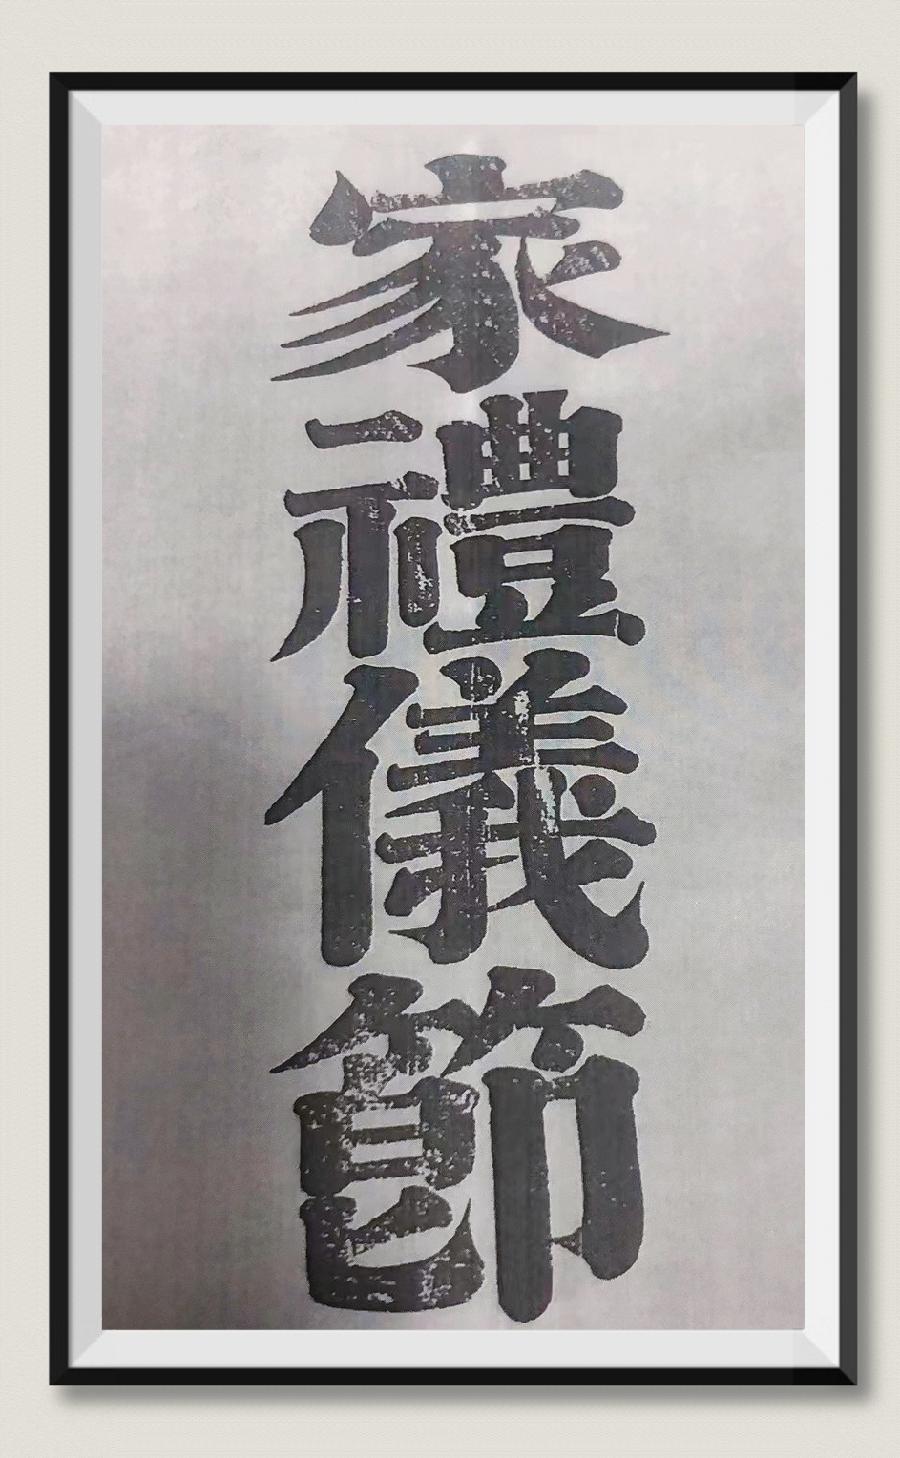 家禮儀節